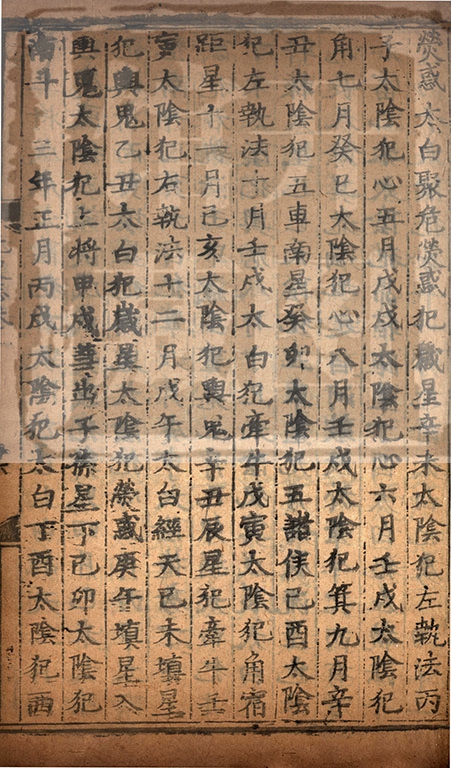 熒惑太白聚危熒惑犯歲星辛未太陰犯左執法丙
子太陰犯心五月戊戌太陰犯心六月壬戌太陰犯
角七月癸巳太陰犯心八月壬戌太陰犯箕九月辛
丑太陰犯五車南星癸卯太陰犯五諸侯己酉太陰
犯左執法十月壬戌太白犯牽牛戊寅太陰犯角宿
距星十一月己亥太陰犯輿鬼辛丑辰星犯牽牛壬
寅太陰犯右執法十二月戊午太白經天己未塡星
犯輿鬼乙丑太白犯歲星太陰犯熒惑庚午塡星入
輿鬼太陰犯上將甲戌彗出子孫星下己卯太陰犯
南斗 三年正月丙戌太陰犯太白丁酉太陰犯西